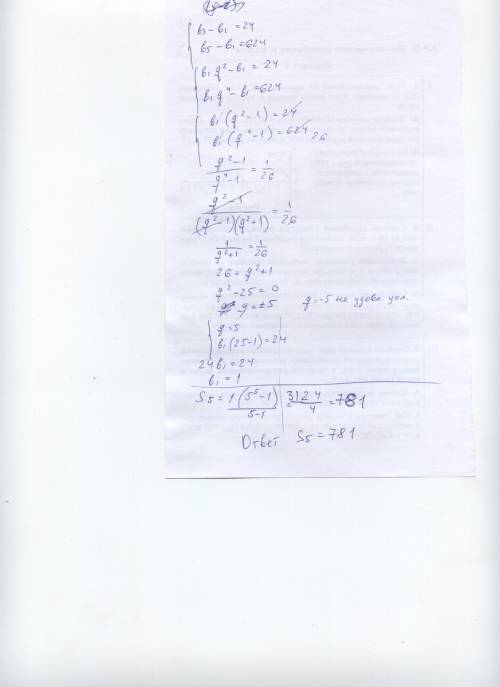 b₃-b₁=24
b₅-b₁=624
b₁q²-b₁=24
b₁q⁴-b₁=624
b₁(q²-1)=24
b₁(q⁴-1)=624 26
(q²-1)/(q⁴-1)=1/26
(q²-1)/((q²-1)(q²+1))=1/26
1/(q²+1)=1/26
26=q²+1
q²-25=0
q=±5 q=-5 не удовл усл.
q=5
b₁(25-1)=24
24b₁=24
b₁=1
S5=1(5⁵-1)/(5-1)=3124/4=781
Ответ S5=781